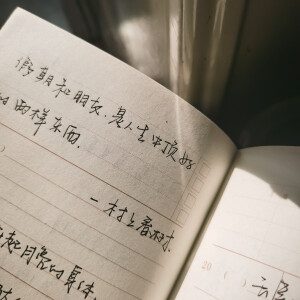 假期和朋友,是人生中顶好
的两样东西.
—村上春树.
起月亮的身体,